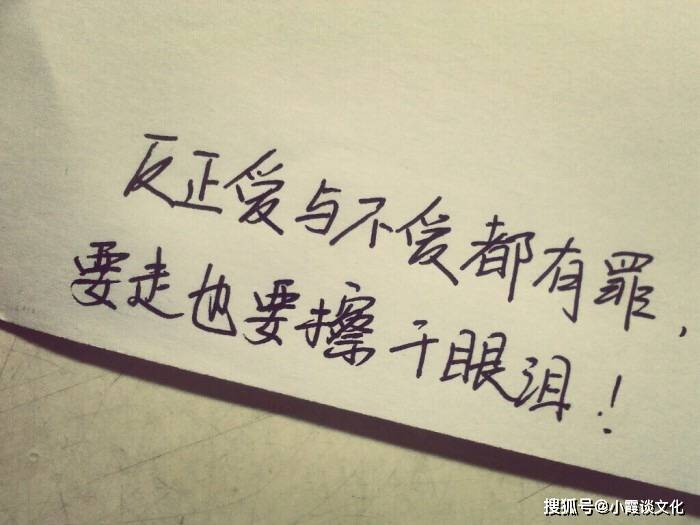 反正爱与不爱都有罪，
要走也要擦干眼泪！
搜狐号@小霞谈文化